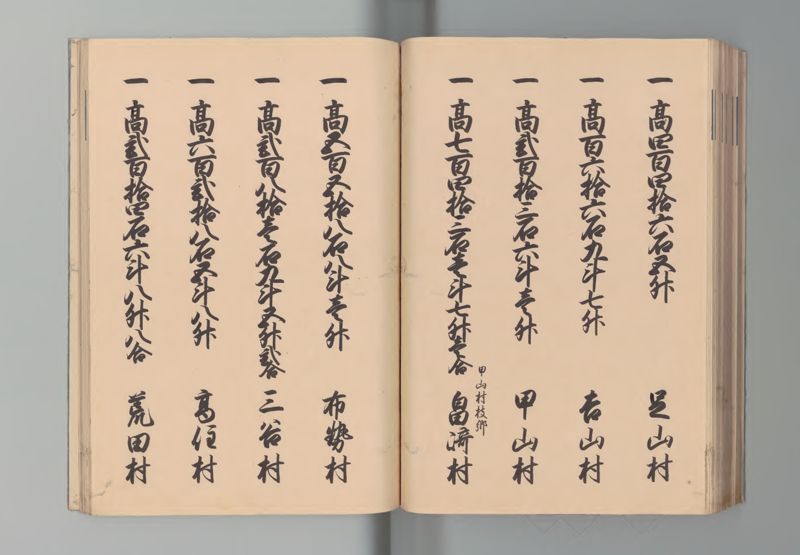 一 高四百四拾六石五升 足山村
一 高百六拾六石九斗七升 吉山村
一 高弐百拾三石六斗壱升 甲山村
甲山村枝郷
一 高七百四拾三石壱斗七升壱合 畠﨑村
一 高五百五拾八石八斗壱升 布勢村
一 高弐百八拾壱石九斗五升弐合 三谷村
一 高六百弐拾八石五斗八升 高住村
一 高弐百拾四石六斗八升八合 荒田村